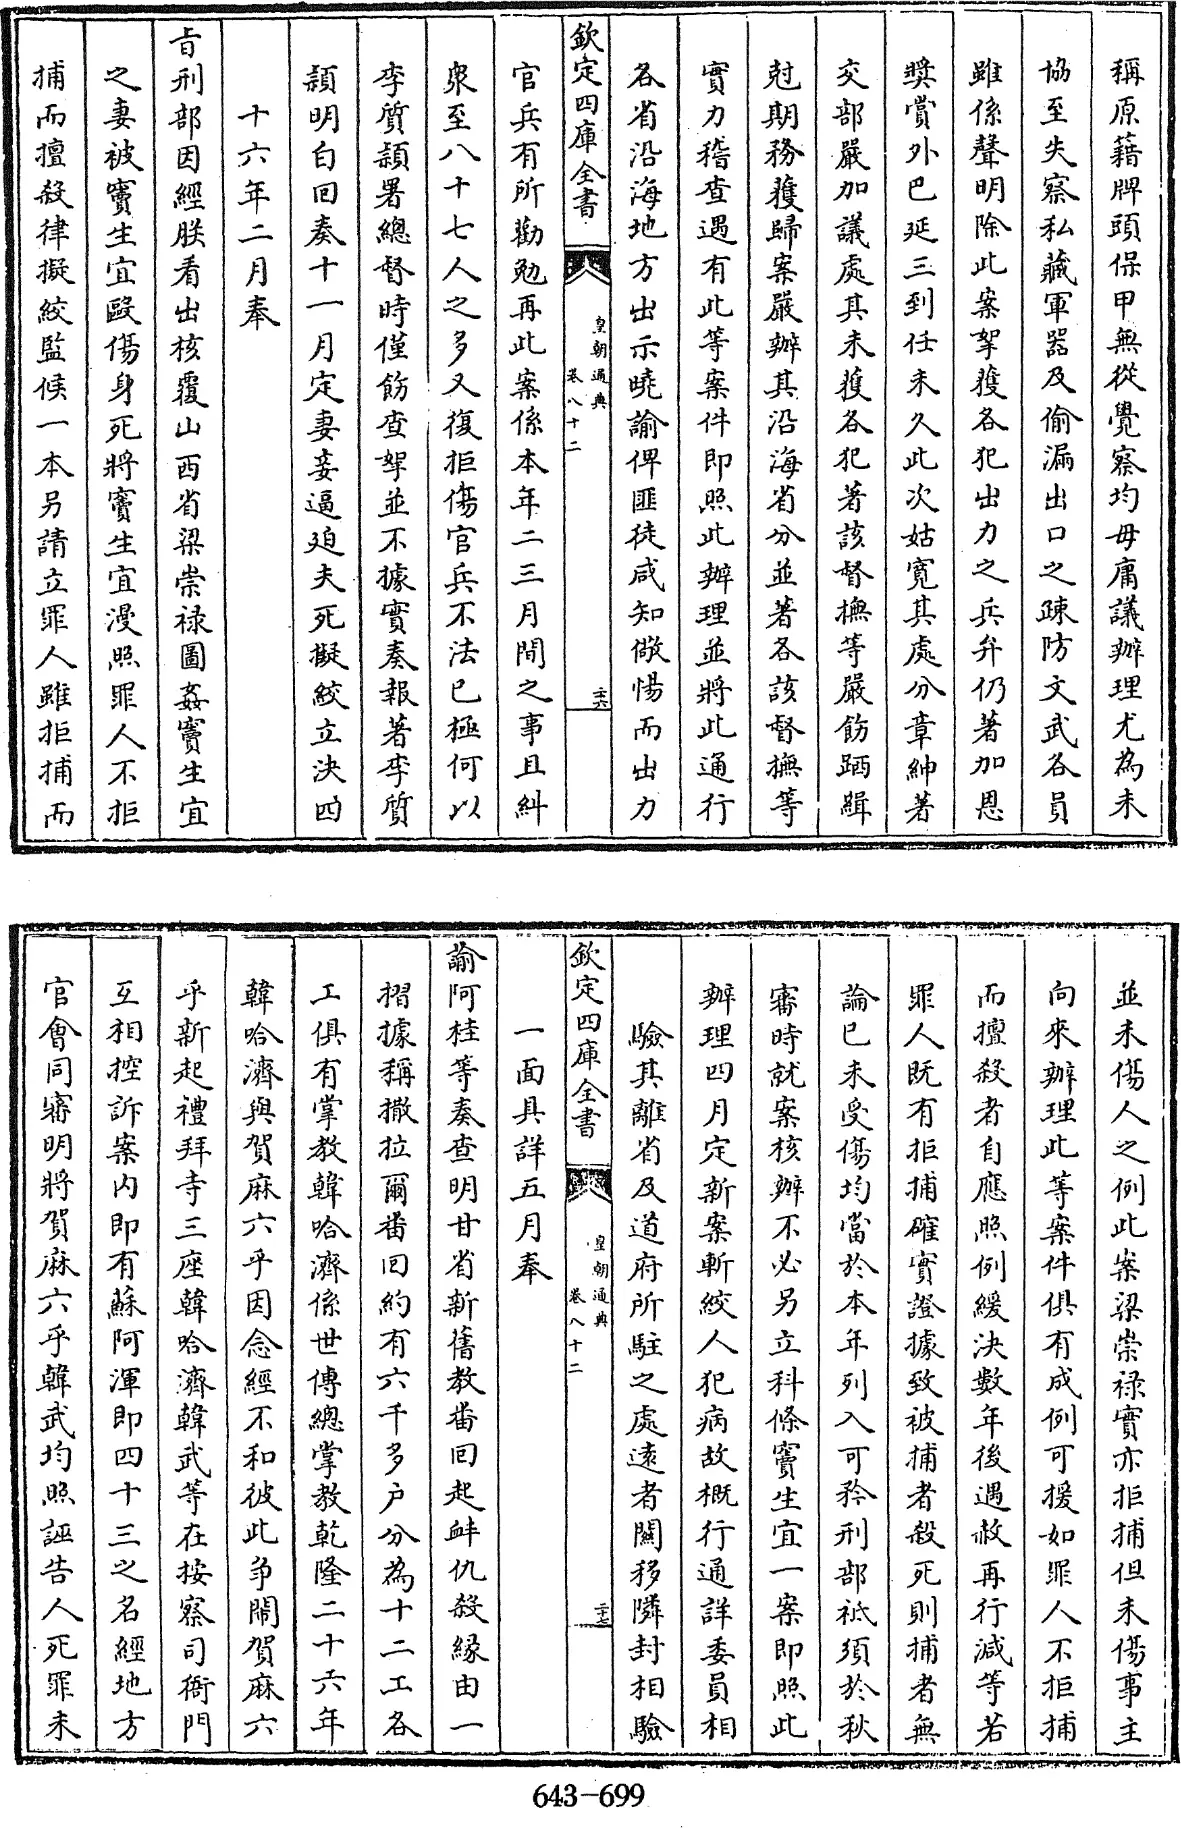 稱原藉牌頭保甲無從覺察均毋庸議辦理尤為未
協至失察私藏軍器及偷漏出口之疎防文武各員
雖係聲明除此案拏獲各犯出力之兵弁仍著加恩
奬賞外巴延三到任未久此次姑寛其處分章紳著
交部嚴加議處其未獲各犯著該督撫等嚴飭躧緝
尅期務獲歸案嚴辦其沿海省分並著各該督撫等
實力稽查遇有此等案件即照此辦理並將此通行
各省沿海地方出示曉諭俾匪徒咸知儆惕而出力
欽定四庫全書
皇朝通典
卷八十二
二十六
官兵有所勸勉再此案係本年二三月間之事且糾
衆至八十七人之多又復拒傷官兵不法已極何以
李質頴署總督時僅飭查拏並不據實奏報著李質
頴明白回奏十一月定妻妾逼迫夫死擬絞立決四
十六年二月奉
㫖刑部因經朕看出核覆山西省梁崇禄圖姦竇生宜
之妻被竇生宜毆傷身死將竇生宜漫照罪人不拒
捕而擅殺律擬絞監候一本另請立罪人雖拒捕而
並未傷人之例此案梁崇禄實亦拒捕但未傷事主
向來辦理此等案件俱有成例可援如罪人不拒捕
而擅殺者自應照例緩決數年後遇赦再行減等若
罪人既有拒捕確實證據致被捕者殺死則捕者無
論已未受傷均當於本年列入可矜刑部祗須於秋
審時就案核辦不必另立科條竇生宜一案即照此
辦理四月定新案斬絞人犯病故概行通詳委員相
驗其離省及道府所駐之處遠者關移隣封相驗
欽定四庫全書
皇朝通典
卷八十二
二十七
一面具詳五月奉
諭阿桂等奏查明甘省新舊教畨回起衅仇殺緣由一
摺據稱撒拉爾畨回約有六千多户分為十二工各
工俱有掌教韓哈濟係世傳總掌教乾隆二十六年
韓哈濟與賀麻六乎因念經不和彼此争鬧賀麻六
乎新起禮拜寺三座韓哈濟韓武等在按察司衙門
互相控訴案内即有蘇阿渾即四十三之名經地方
官會同審明將賀麻六乎韓武均照誣告人死罪未
643-699